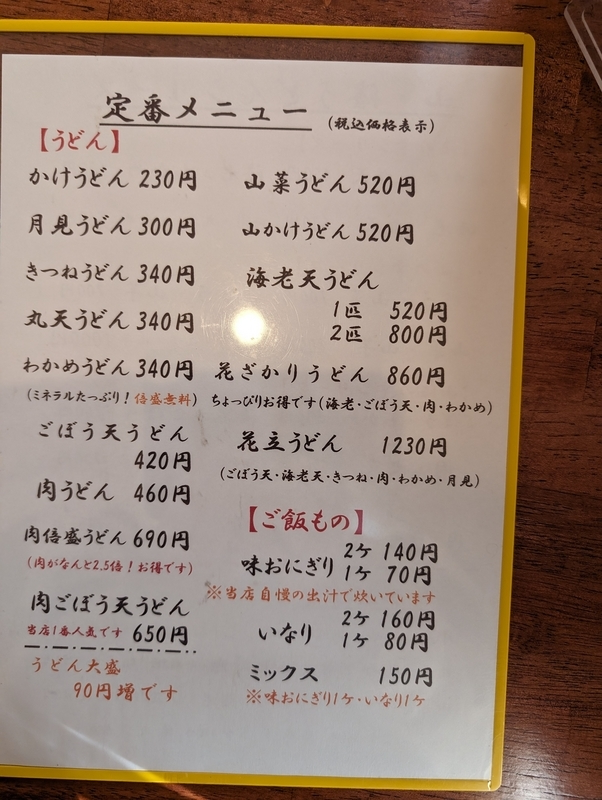 定番メニュー (税込価格表示)
【うどん】
かけうどん 230円
月見うどん 300円
きつねうどん 340円
丸天うどん 340円
わかめうどん 340円
(ミネラルたっぷり!倍盛無料)
ごぼう天うどん
420円
肉うどん 460円
肉倍盛うどん 690円
(肉がなんと2.5倍!お得です)
肉ごぼう天うどん
当店1番人気です 650円
うどん大盛
90円増です
山菜うどん 520円
山かけうどん 520円
海老天うどん
1匹 520円
2匹 800円
花ざかりうどん 860円
ちょっぴりお得です(海老・ごぼう天・肉・わかめ)
花立うどん 1230円
(ごぼう天・海老天・きつね・肉・わかめ・月見)
【ご飯もの】
味おにぎり 2ケ 140円
1ケ 70円
※当店自慢の出汁で炊いています
いなり 2ケ 160円
1ケ 80円
ミックス 150円
※味おにぎり1ケ・いなり1ケ